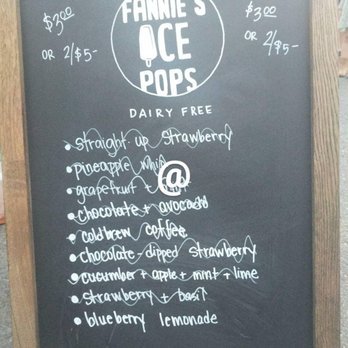 $3.00 $3.00
OR 2/$5- OR 2/$5-
FANNIE'S
ICE
POPS
DAIRY FREE
• straight up strawberry
• pineapple whip
• grapefruit +
@
• chocolate + avocado
• coldbrew coffee
• chocolate-dipped strawberry
• cucumber + apple + mint + lime
• strawberry + basil
• blueberry lemonade